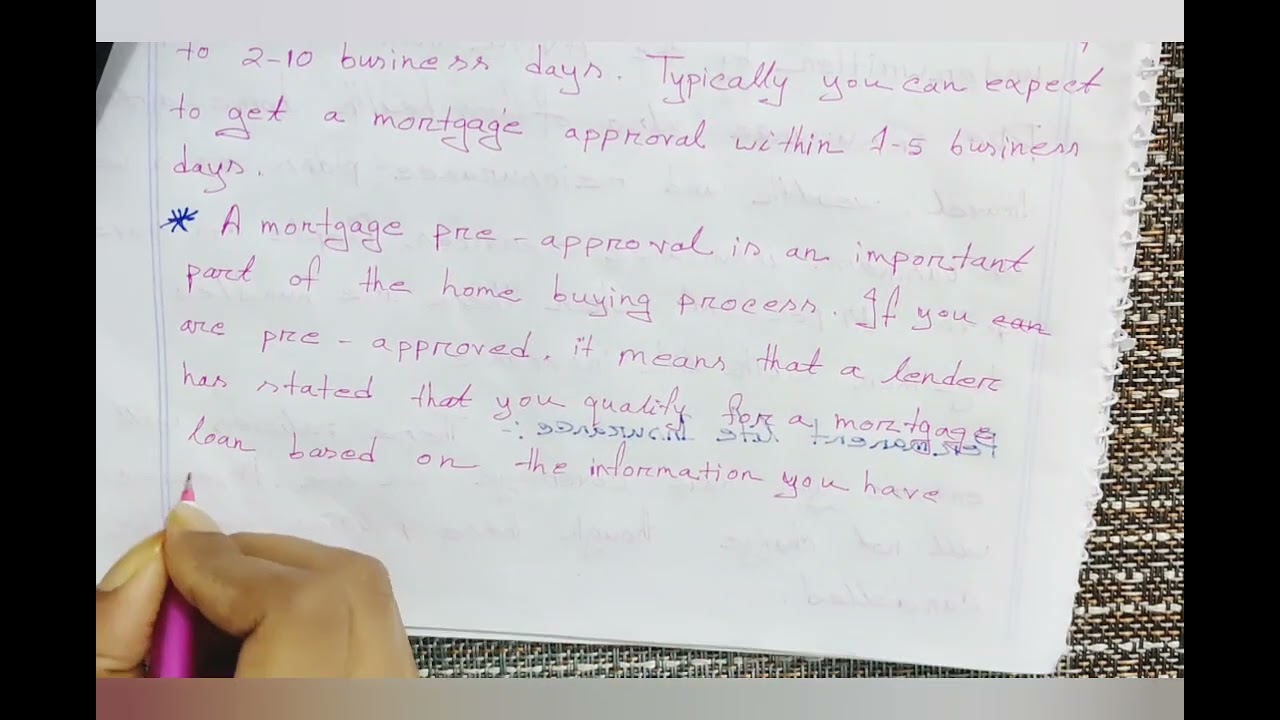 to 2-10 business days. Typically you can expect
to get a mortgage approval within 1-5 business
days.
* A mortgage pre-approval is an important
part of the home buying process. If you can
are pre-approved, it means that a lender
has stated that you qualify for a mortgage
loan based on the information you have